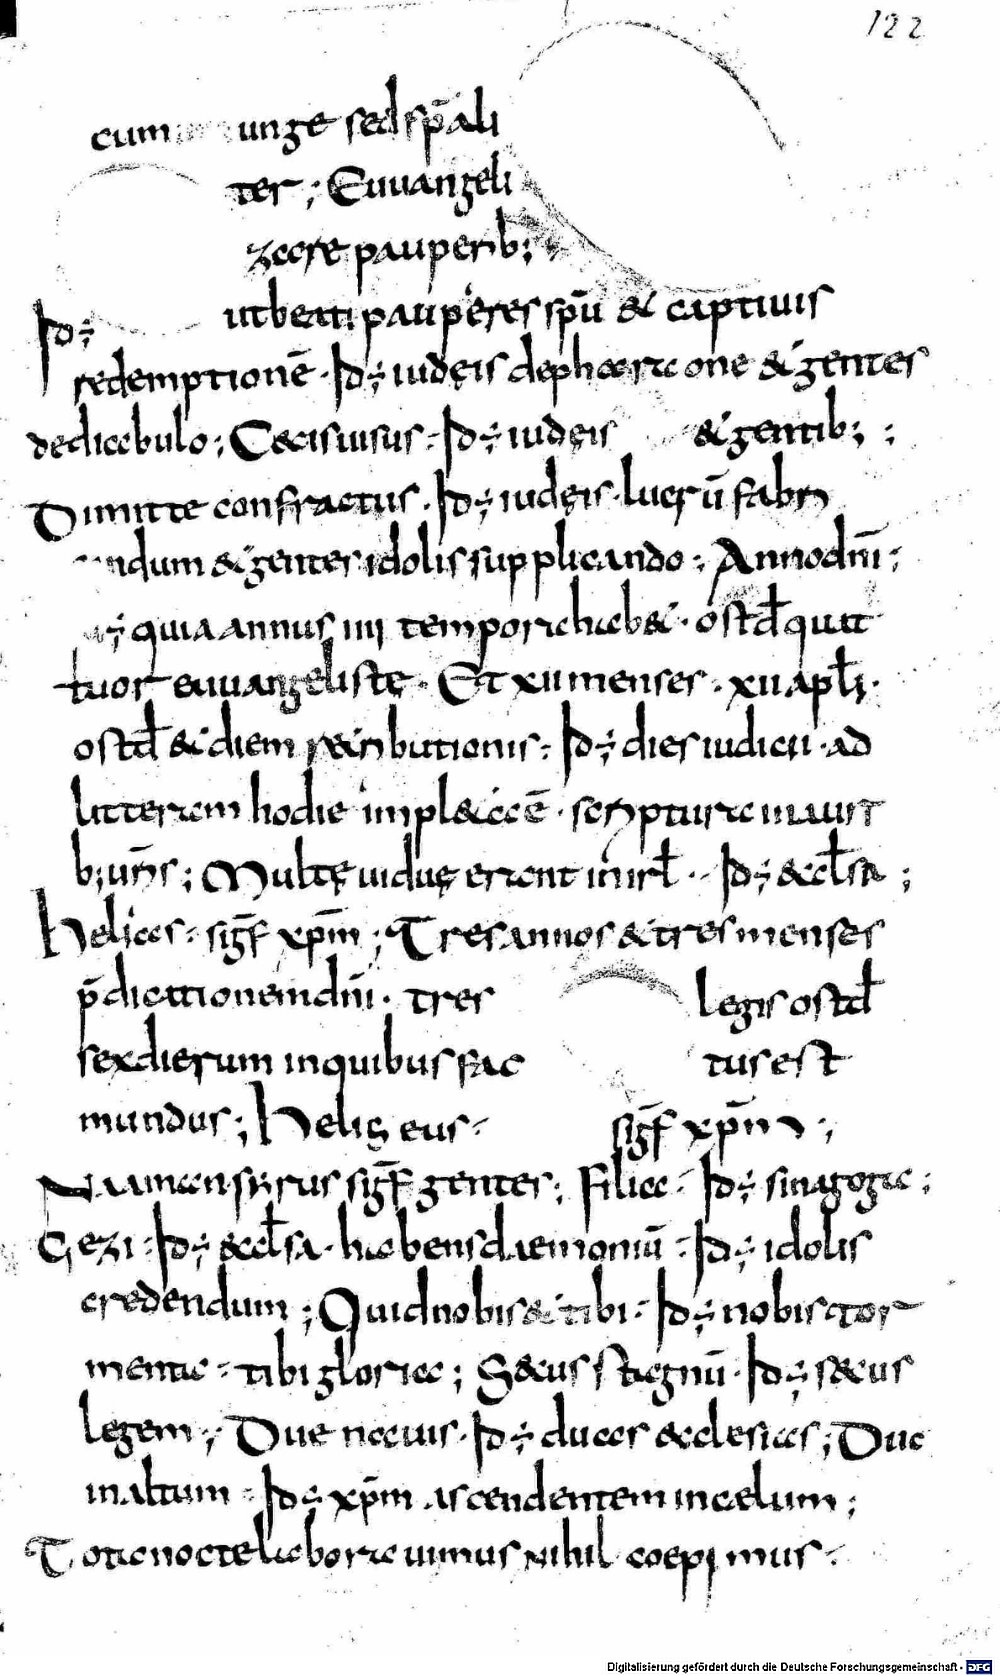 122
cum unge sed sp̄ali
ter ; Euuangeli
zare pauperib;
Id÷ ut beati pauperes spū & captiuis
redemptionē · Id÷ iudęis de pharaone & gentes
de diabulo ; Cæcis uisus · Id÷ iudęis & gentib; ;
Dimitte confractus · Id÷ iudęis · lucrū fabri
ndum & gentes idolis supplicando ; Anno dn̄i ;
÷ quia annus iiii tempora hab& · ostd̄ quat
tuor euuangelistę · Et xii menses · xii apl̄i ·
ostd̄ & diem retributionis · Id÷ dies iudicii · ad
litteram hodie impl&a ē · scriptura in auri
b; uris ; Multę uiduę erant in irl̄ · Id÷ æccl̄sa ;
Helias · sigf̄ xp̄m ; Tres annos & tres menses
p̄dicationem dn̄i · tres legis ostd̄
sex dierum in quibus fac tus est
mundus ; Heliseus · sigf̄ xp̄m ;
Naaman sirus sigf̄ gentes ; Filia · Id÷ sinagoga ;
Gezi · Id÷ æccl̄sa · habens daemoniū · Id÷ idolis
credendum ; Quid nobis & tibi · Id÷ nobis tor
menta · tibi gloria ; Secus stagnū · Id÷ secus
legem ; Due nauis · Id÷ duas æclesias ; Duc
in altum · Id÷ xp̄m ascendentem in caelum ;
Tota nocte laborauimus nihil coepimus ·
Digitalisierung gefördert durch die Deutsche Forschungsgemeinschaft - DFG